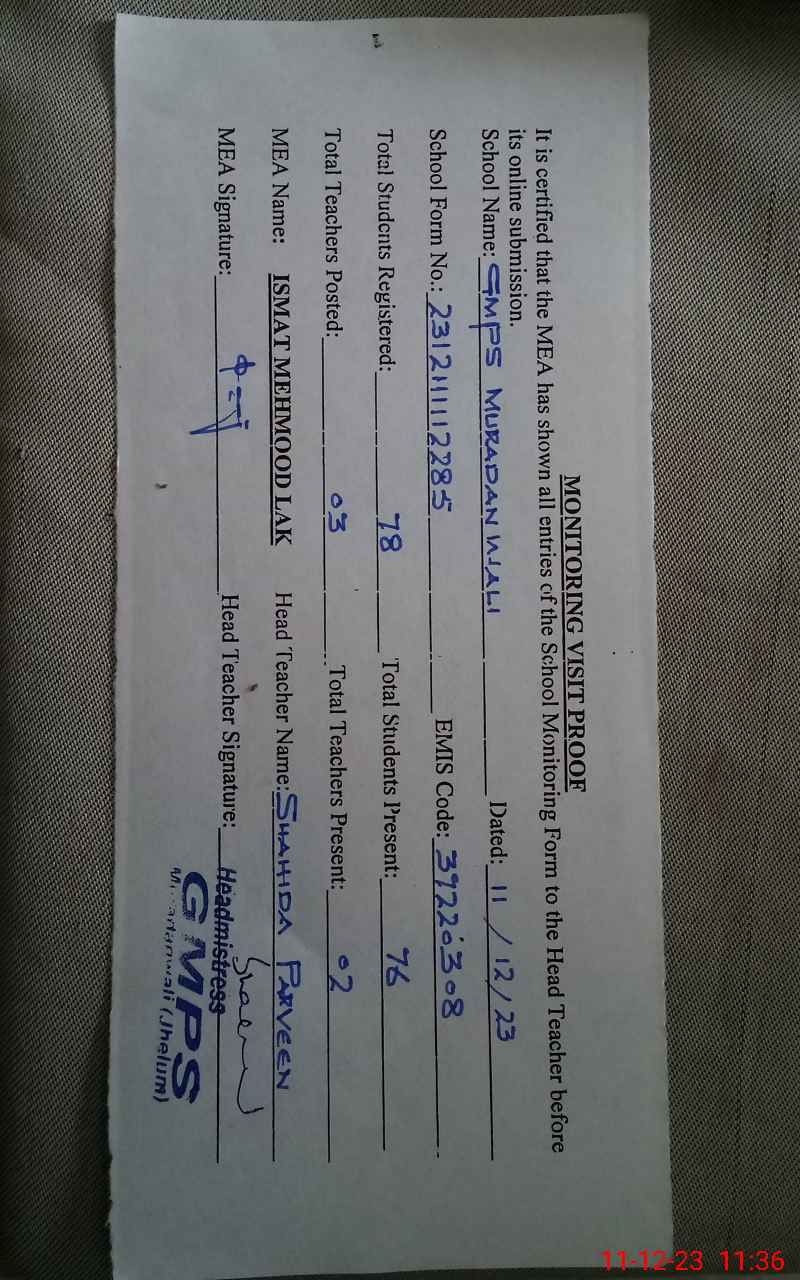 MONITORING VISIT PROOF
It is certified that the MEA has shown all entries of the School Monitoring Form to the Head Teacher before
its online submission.
School Name: GMPS MURADAN WALI Dated: 11/12/23
School Form No.: 231211112285 EMIS Code: 39220308
Total Students Registered: 78 Total Students Present: 76
Total Teachers Posted: 03 Total Teachers Present: 02
MEA Name: ISMAT MEHMOOD LAK Head Teacher Name: SHAHIDA PARVEEN
MEA Signature: Head Teacher Signature:
Headmistress
GMPS
(Jhelum)
11-12-23 11:36